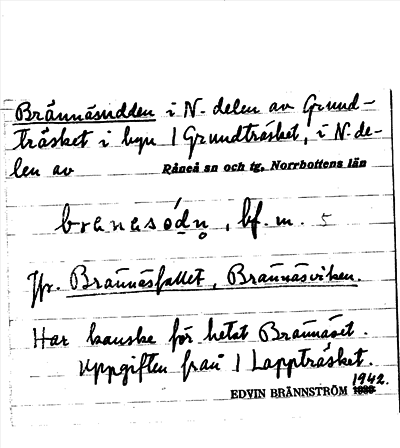 Brännäsudden i N-delen av Grund-
träsket i byn 1 Grundträsket, i N-de-
len av Råneå sn och tg, Norrbottens län
bf. m. 5
Jfr. Brännäsfallet, Brännäsviken.
Har kanske förr hetat Brännäset.
Uppgiften från 1 Lappträsket.
1942.
EDVIN BRÄNNSTRÖM